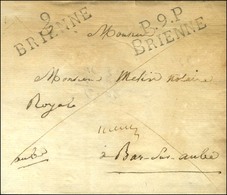 9
BRIENNE
P.9.P
BRIENNE
Monsieur
Monsieur Melin notaire
Royal
aube
à Bar-Sur-aube